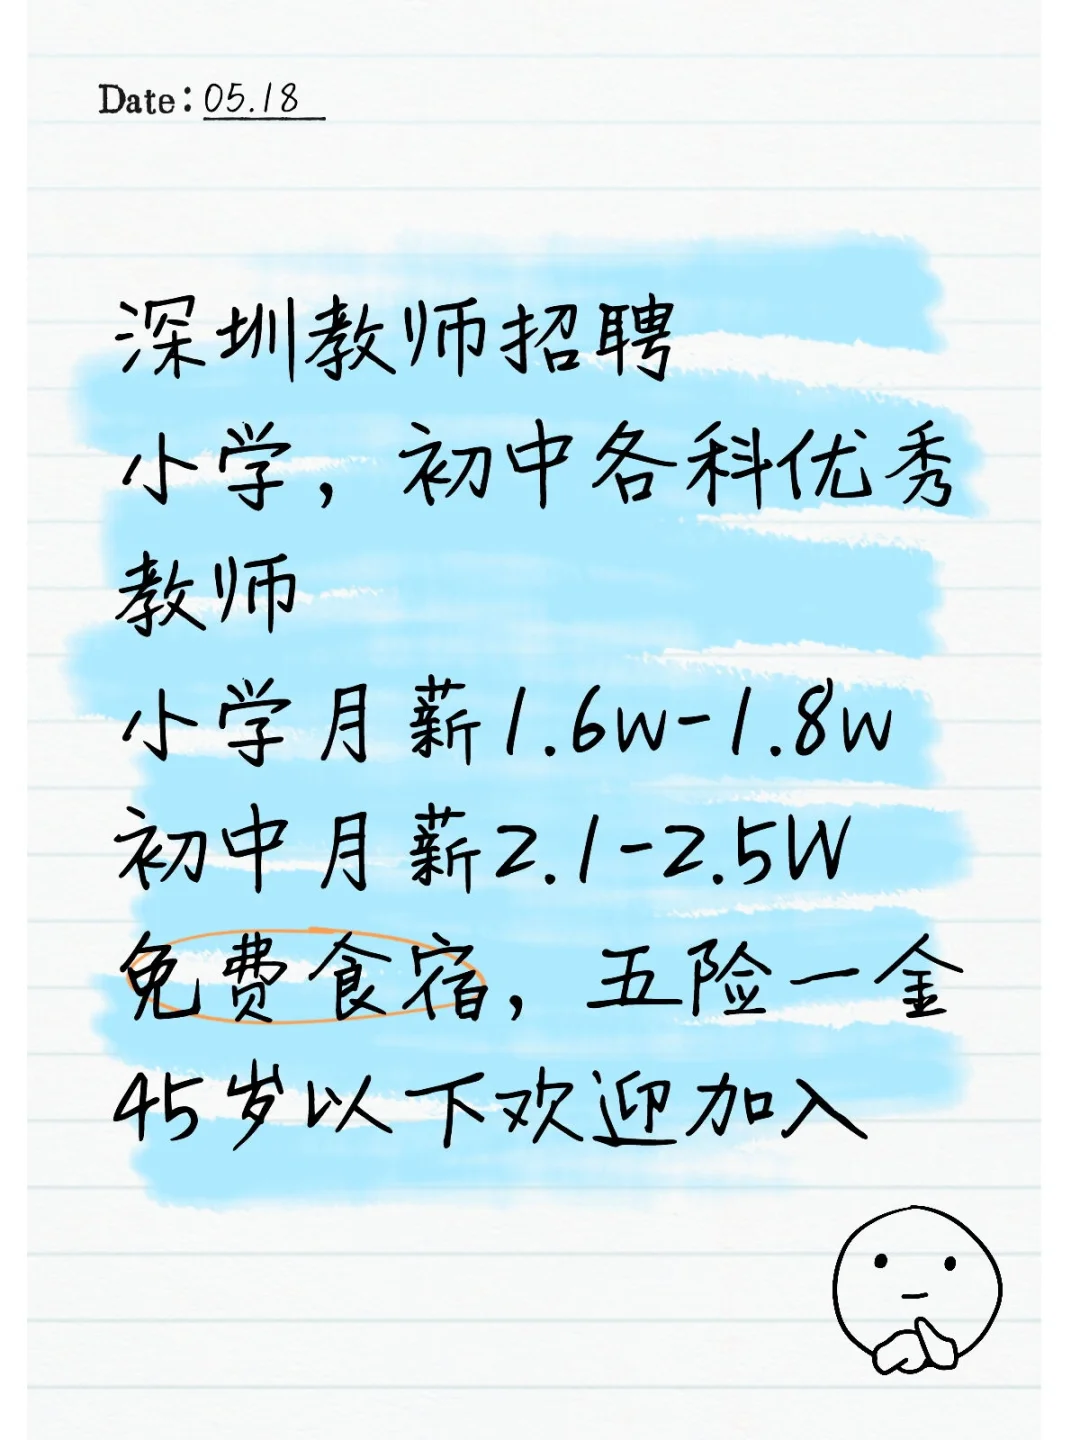 Date: 05.18
深圳教师招聘
小学，初中各科优秀
教师
小学月薪1.6w-1.8w
初中月薪2.1-2.5W
免费食宿，五险一金
45岁以下欢迎加入